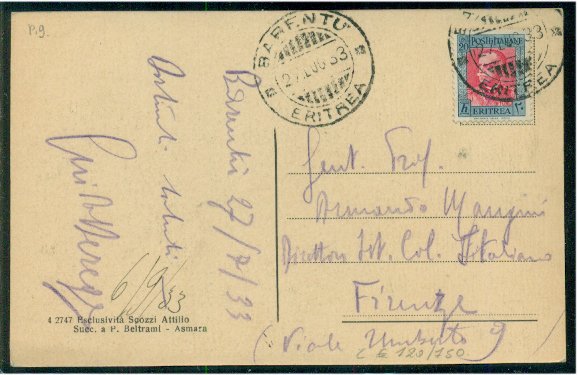 P.9.
BARENTU'
27 LUG 33
ERITREA
POSTE ITALIANE
20
ERITREA
ERITREA
Barentù 27/7/33
saluti
6/9/33
4 2747 Esclusività Scozzi Attilio
Succ. a P. Beltrami - Asmara
Gent. Prof.
Armando Mangini
Direttore Ist. Col. Italiano
Firenze
(Viale Umberto 9
C E 120/150